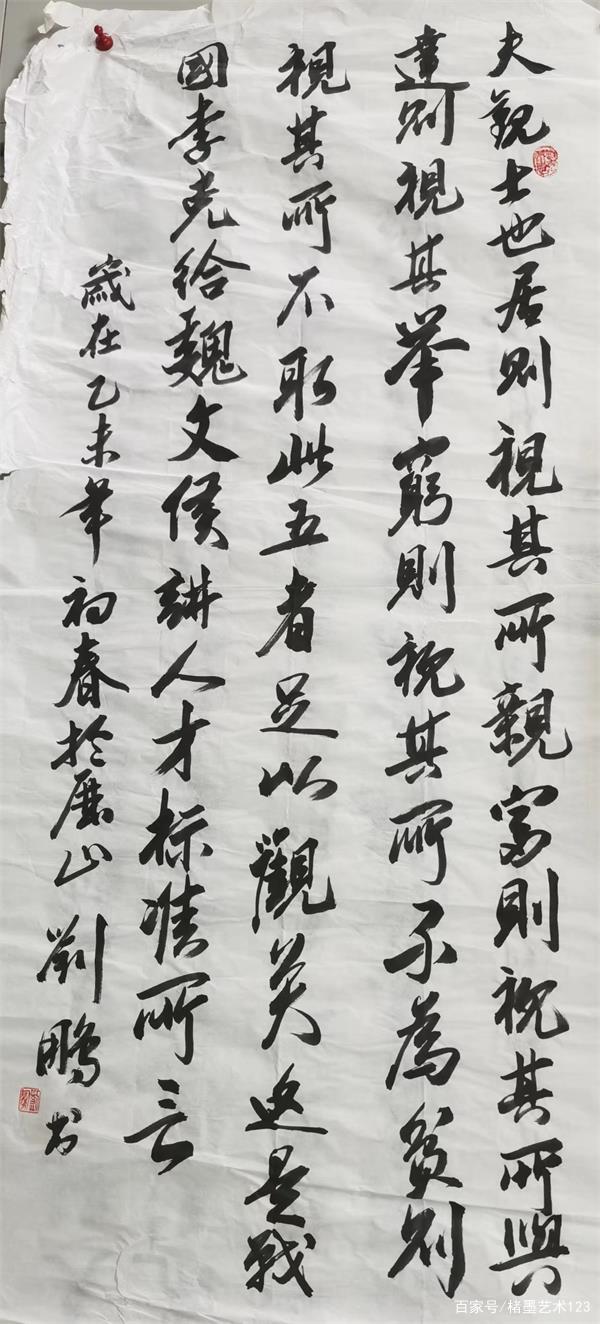 夫觀士也居則視其所親富則視其所與
達則視其舉窮則視其所不為貧則
視其所不取此五者足以觀矣这是戰
國李克给魏文侯講人才标准所言
嵗在乙未年初春於歷山劉鵬书
百家号/楮墨艺术123